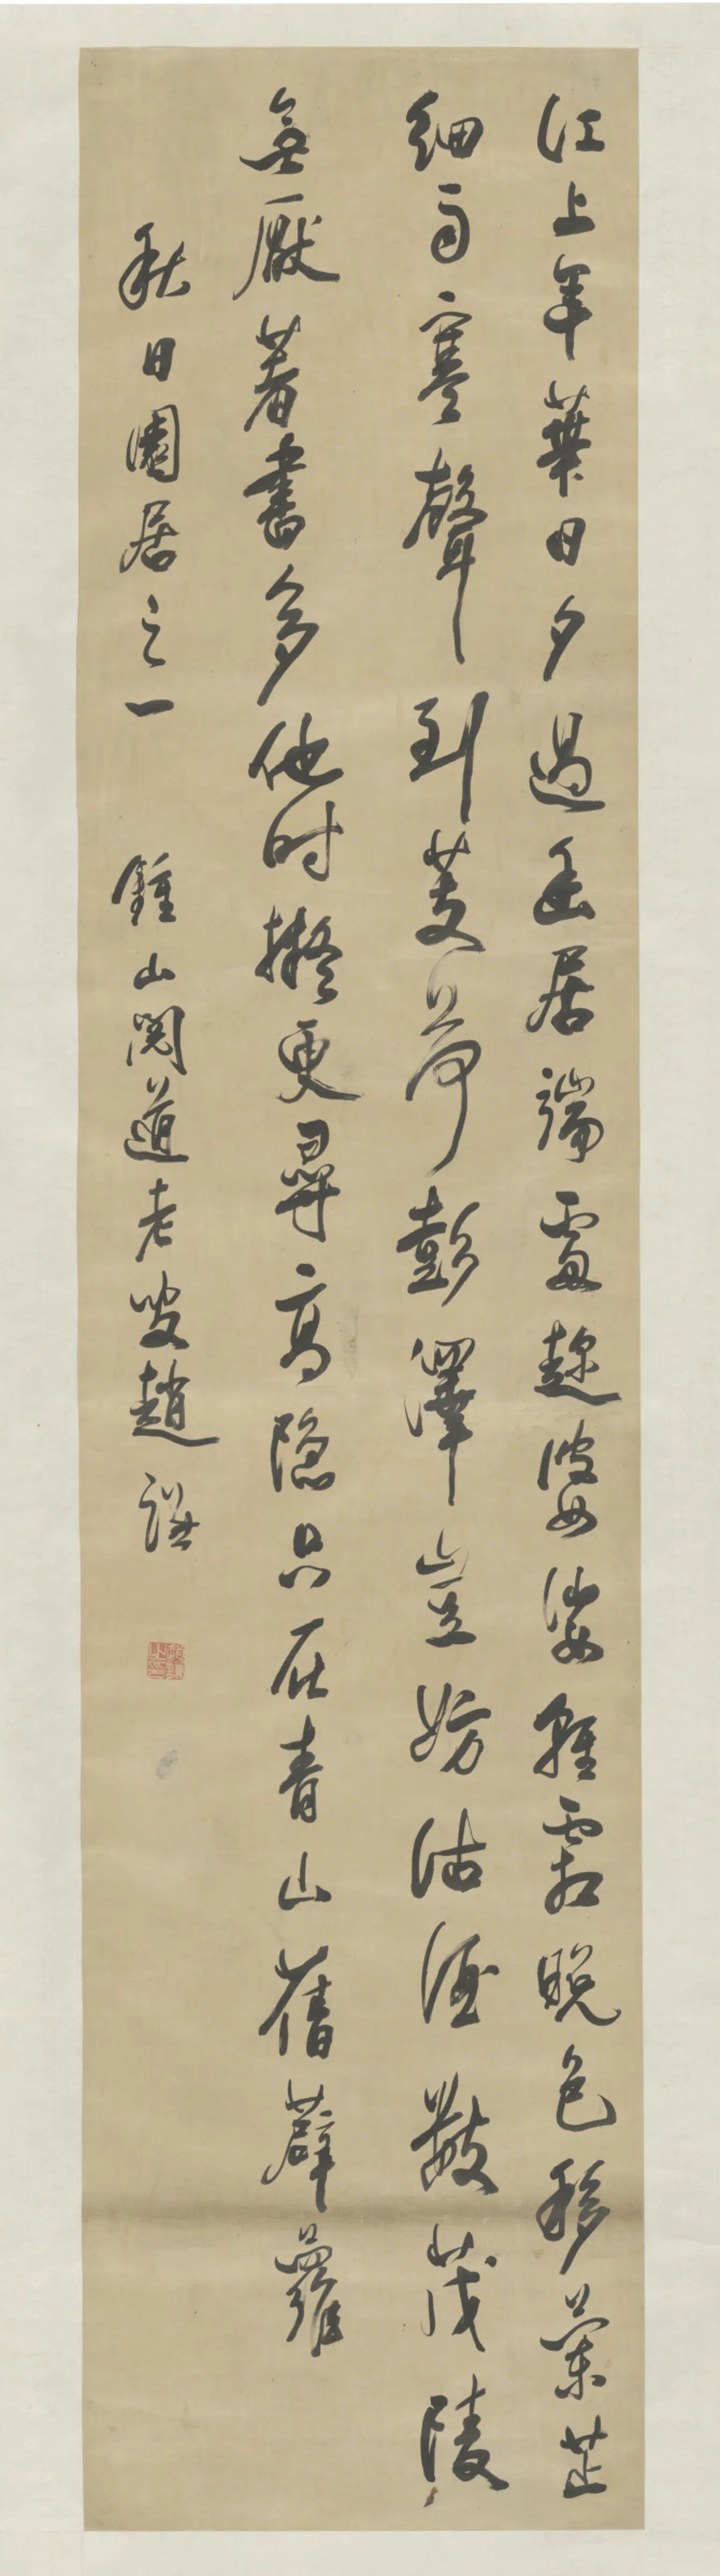 江上年華日夕過幽居端婆娑輕霜晚色移蘭芷
細雨寒聲到芰荷彭澤豈妨沽酒數茂陵
無厭著書多他时擬更尋高隐只在青山舊薜蘿
秋日園居之一 鍾山閱道老叟趙